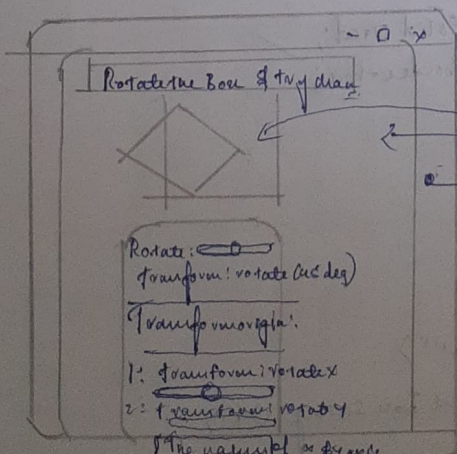 - □ x
Rotate the Box & try
Rotate:
transform: rotate(45deg)
Transformorigin:
1: transform: rotatex
2: transform: rotatey
The